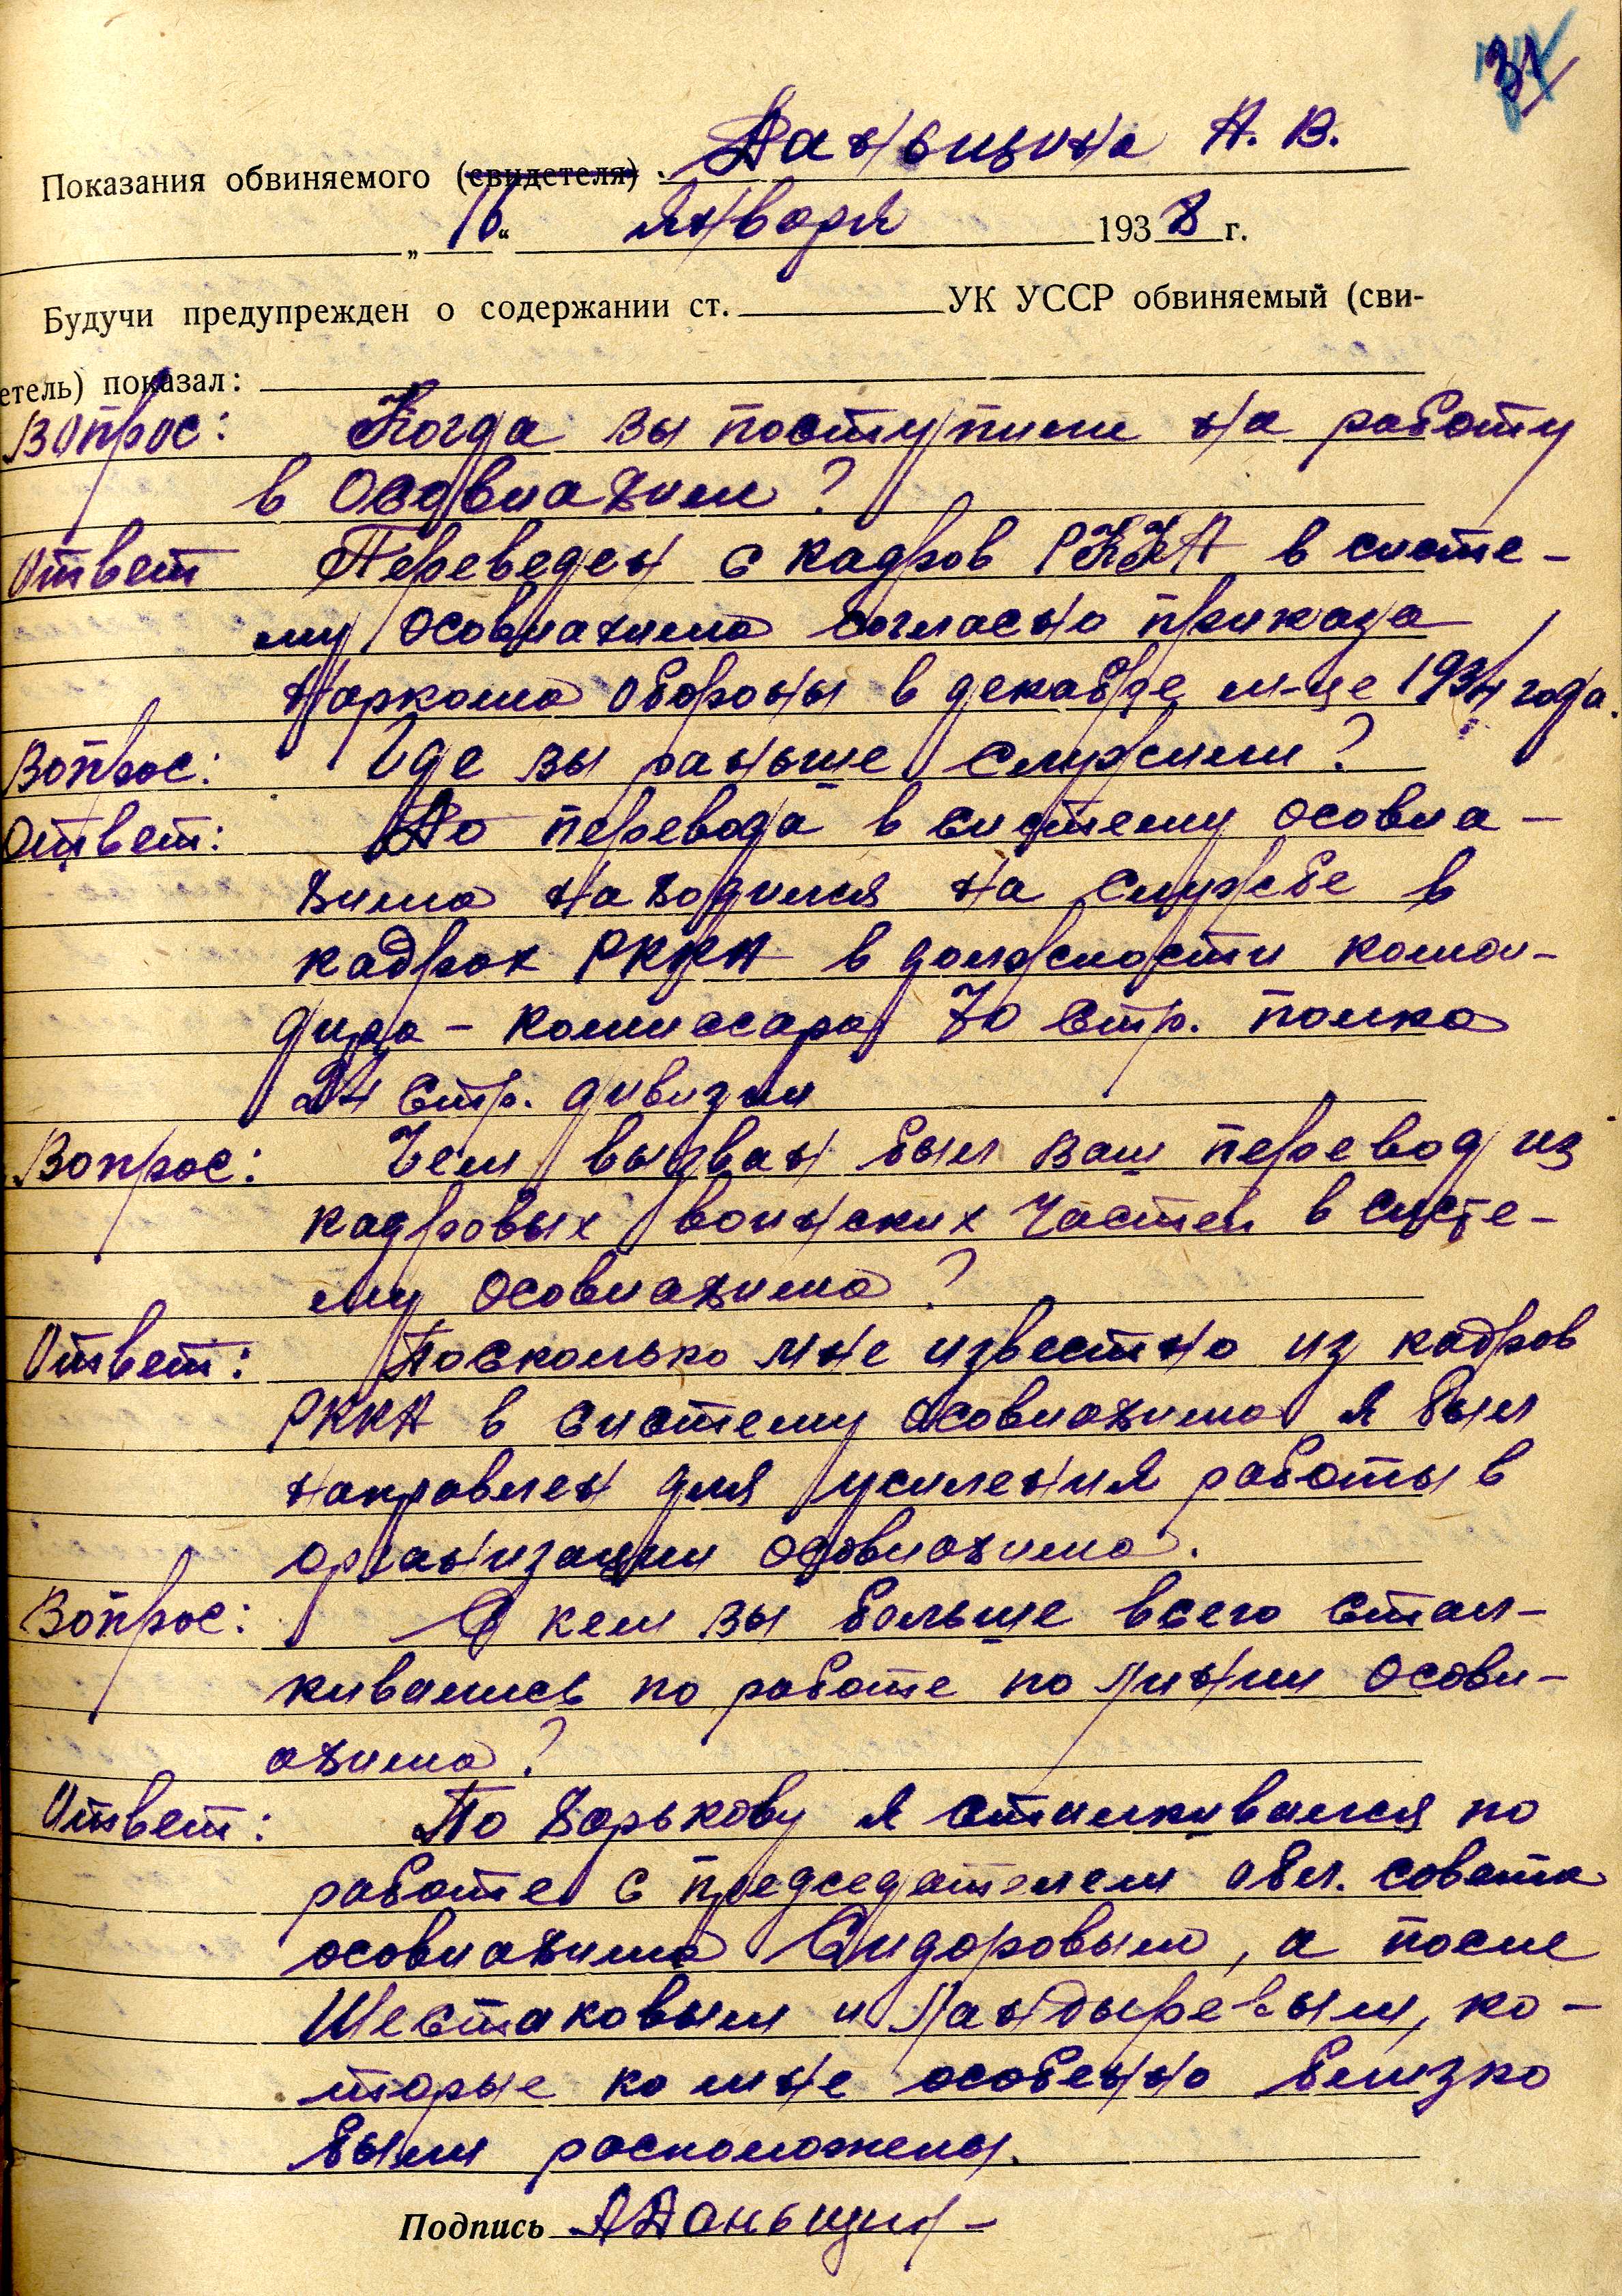 31
Показания обвиняемого (свидетеля) Даньшина А. В.
„16“ января 1938 г.
Будучи предупрежден о содержании ст. УК УССР обвиняемый (сви-
етель) показал:
Вопрос: Когда вы поступили на работу
в Осовиахим?
Ответ Переведен с кадров РККА в систе-
му Осовиахима согласно приказа
Наркома обороны в декабре м-це 1934 года.
Вопрос: Где вы раньше служили?
Ответ: До перевода в систему осовиа-
хима находился на службе в
кадрах РККА в должности коман-
дира – комиссара 70 стр. полка
24 стр. дивизии
Вопрос: Чем вызван был ваш перевод из
кадровых воинских частей в систе-
му осовиахима?
Ответ: Поскольку мне известно из кадров
РККА в систему осовиахима я был
направлен для усиления работы в
организации осовиахима.
Вопрос: С кем вы больше всего стал-
кивались по работе по линии Осови-
ахима?
Ответ: По Харькову я сталкивался по
работе с председателем обл. совета
осовиахима Сидоровым, а после
Шестаковым и Ландыревым, ко-
торые ко мне особенно близко
были расположены.
Подпись АДаньшин